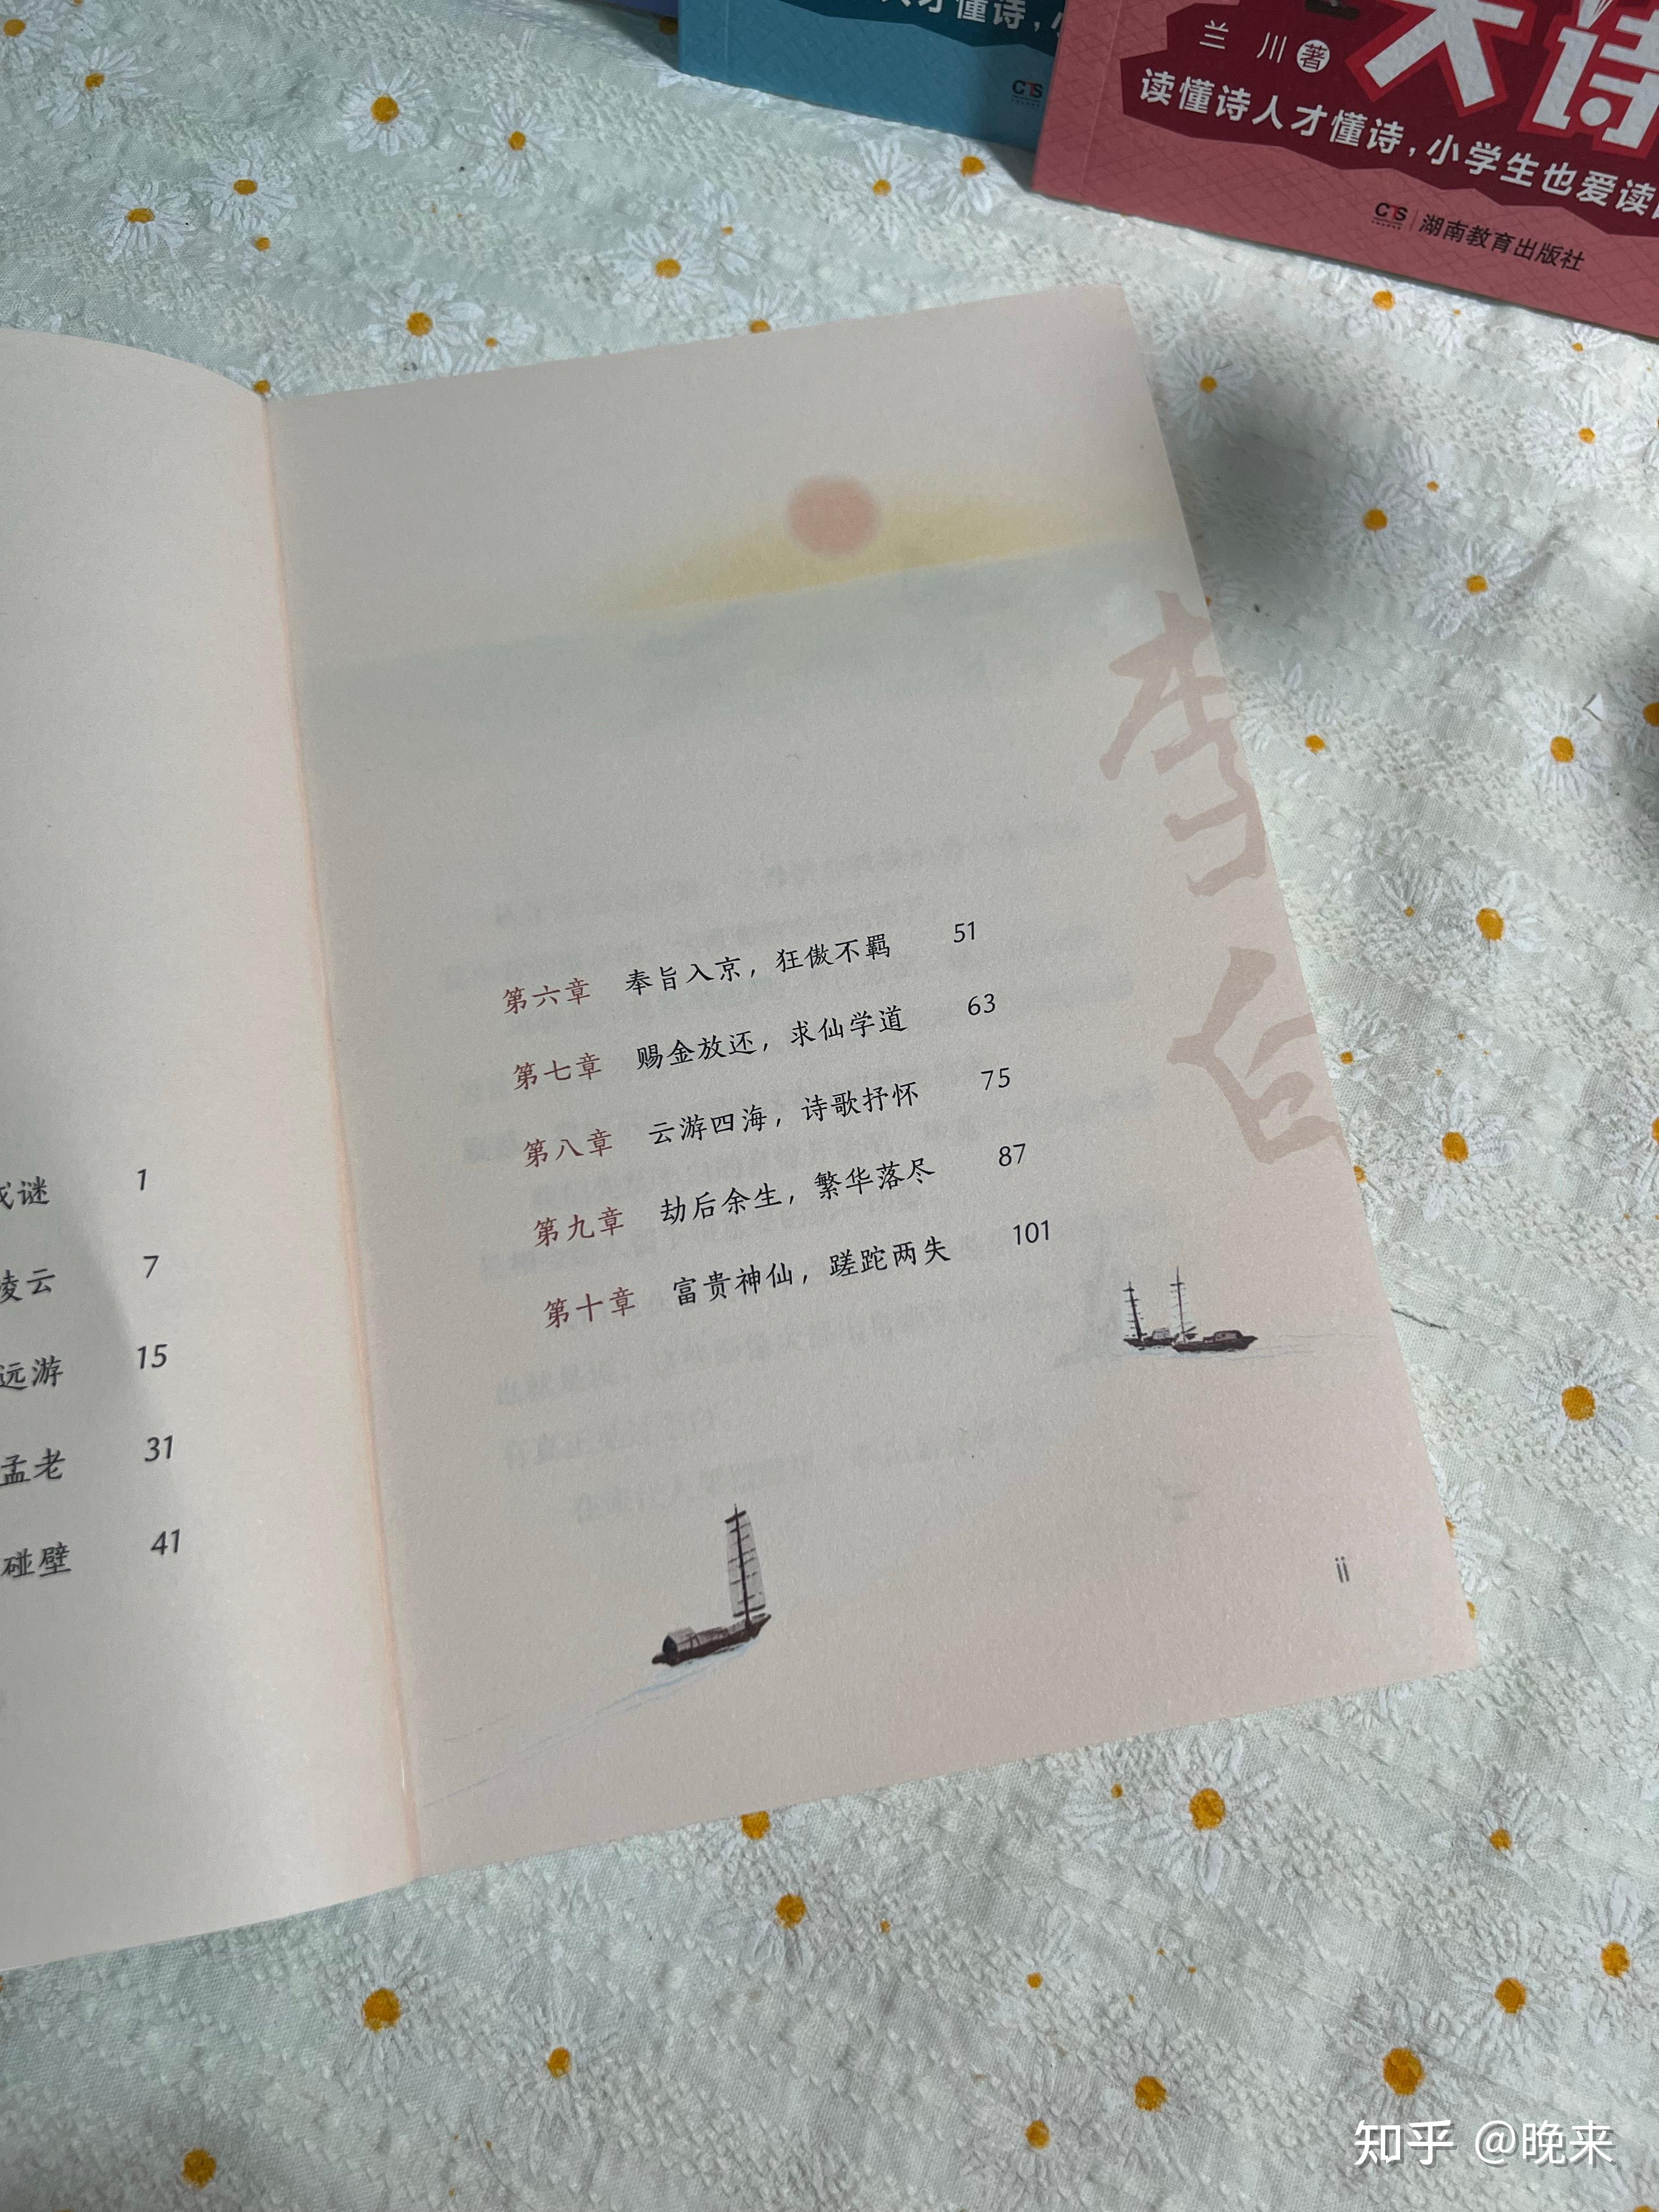 人才懂诗，小
CTS
兰川 著
大诗
读懂诗人才懂诗，小学生也爱读
CTS 湖南教育出版社
谜 1
凌云 7
远游 15
孟老 31
碰壁 41
李白
第六章 奉旨入京，狂傲不羁 51
第七章 赐金放还，求仙学道 63
第八章 云游四海，诗歌抒怀 75
第九章 劫后余生，繁华落尽 87
第十章 富贵神仙，蹉跎两失 101
ii
知乎 @晚来